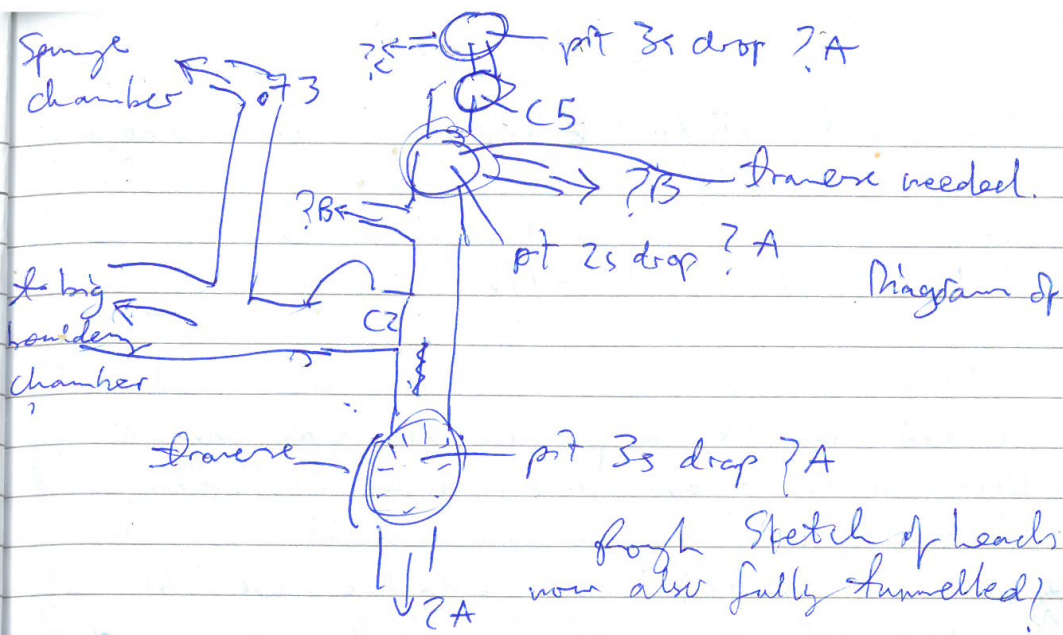 Spunge
chamber
?C
pit 3s drop ?A
C5
?B
traverse needed.
?B
pit 2s drop ?A
to big
bouldery
chamber
C2
Diagram of
traverse
pit 3s drop ?A
Rough Sketch of leads
now also fully tunnelled!
?A